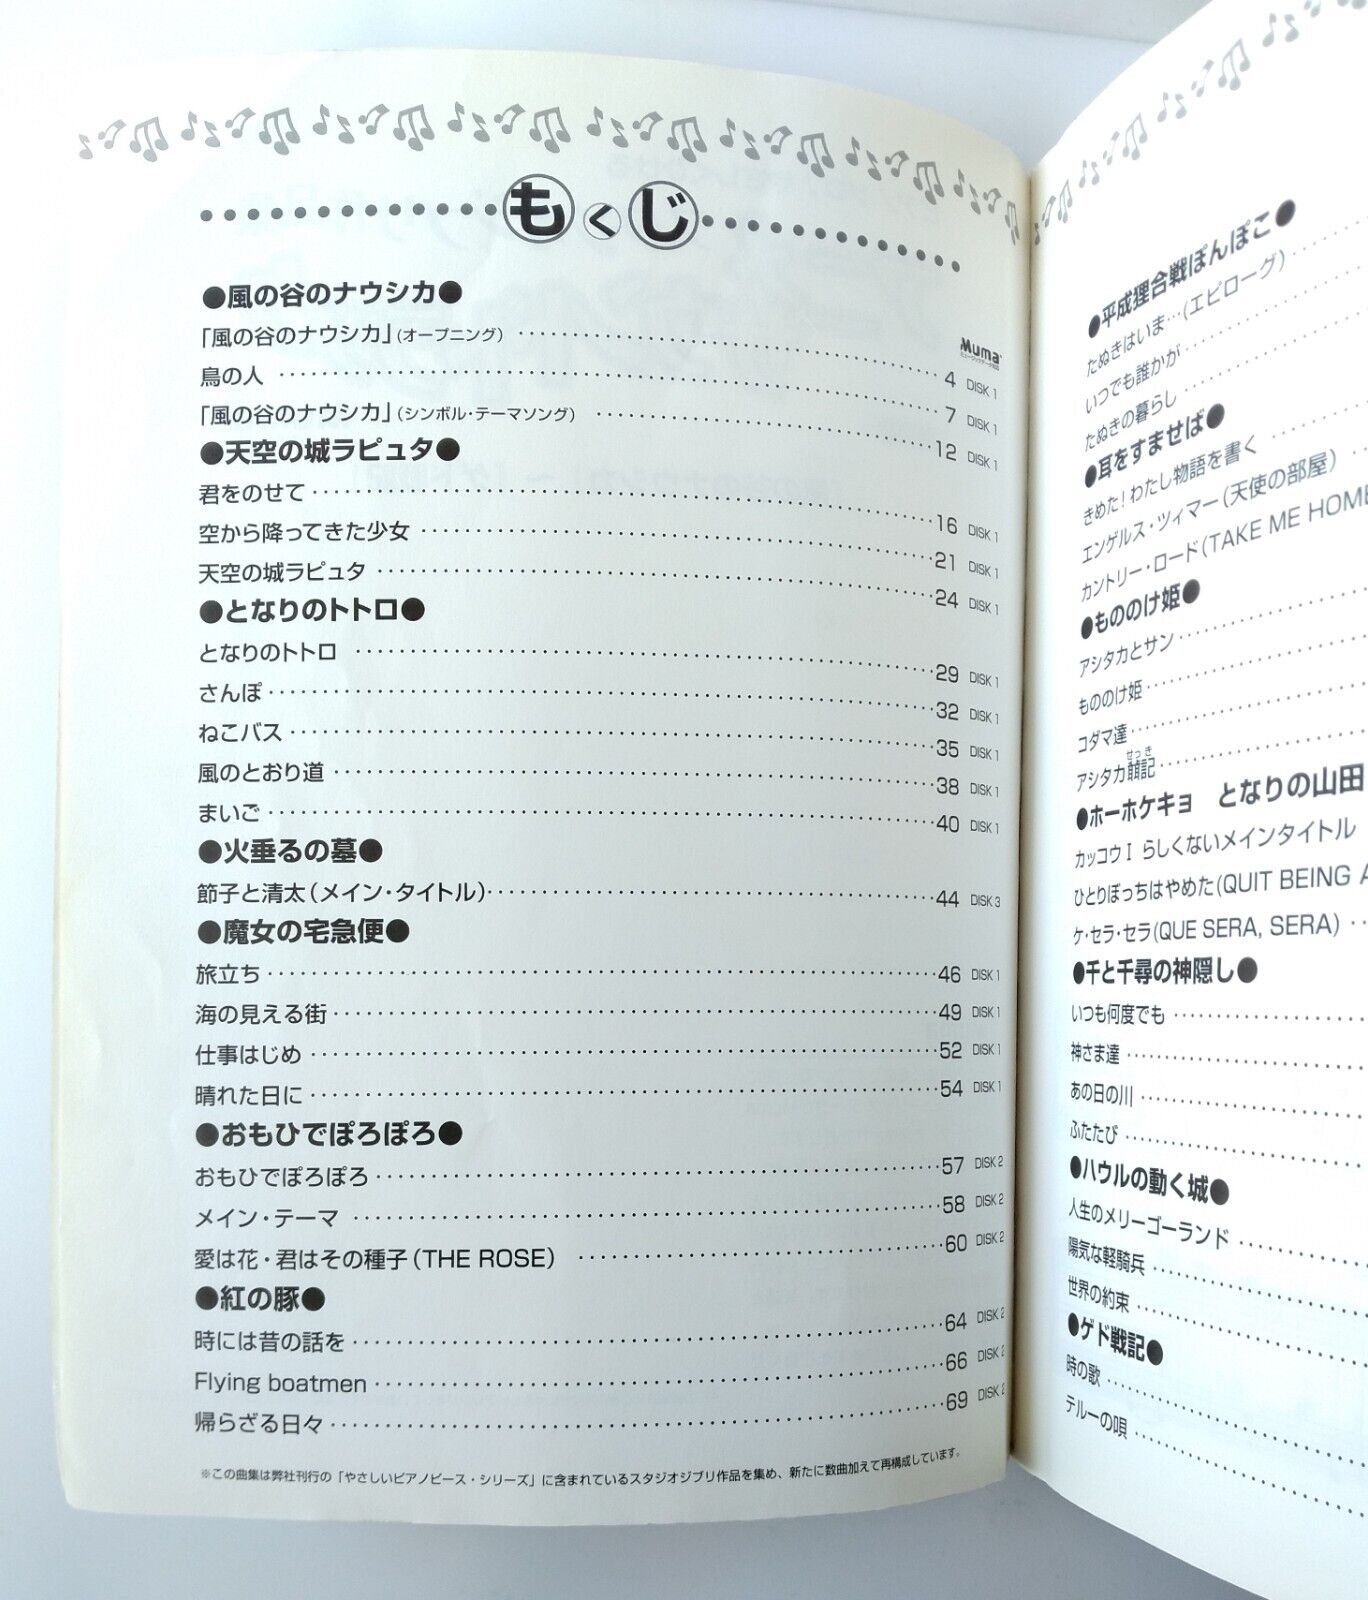 もくじ
●風の谷のナウシカ●
Muma
「風の谷のナウシカ」(オープニング) 4 DISK 1
鳥の人 7 DISK 1
「風の谷のナウシカ」(シンボル・テーマソング) 12 DISK 1
●天空の城ラピュタ●
君をのせて 16 DISK 1
空から降ってきた少女 21 DISK 1
天空の城ラピュタ 24 DISK 1
●となりのトトロ●
となりのトトロ 29 DISK 1
さんぽ 32 DISK 1
ねこバス 35 DISK 1
風のとおり道 38 DISK 1
まいご 40 DISK 1
●火垂るの墓●
節子と清太(メイン・タイトル) 44 DISK 3
●魔女の宅急便●
旅立ち 46 DISK 1
海の見える街 49 DISK 1
仕事はじめ 52 DISK 1
晴れた日に 54 DISK 1
●おもひでぽろぽろ●
おもひでぽろぽろ 57 DISK 2
メイン・テーマ 58 DISK 2
愛は花・君はその種子(THE ROSE) 60 DISK 2
●紅の豚●
時には昔の話を 64 DISK 2
Flying boatmen 66 DISK 2
帰らざる日々 69 DISK 2
※この曲集は弊社刊行の「やさしいピアノピース・シリーズ」に含まれているスタジオジブリ作品を集め、新たに数曲加えて再構成しています。
●平成狸合戦ぽんぽこ●
たぬきはいま…(エピローグ)
いつでも誰かが
たぬきの暮らし
●耳をすませば●
きめた!わたし物語を書く
エンゲルス・ツィマー(天使の部屋)
カントリー・ロード(TAKE ME HOME
●もののけ姫●
アシタカとサン
もののけ姫
コダマ達
アシタカ𦻙記
せっき
●ホーホケキョ となりの山田
カッコウⅠ らしくないメインタイトル
ひとりぼっちはやめた(QUIT BEING A
ケ・セラ・セラ(QUE SERA, SERA)
●千と千尋の神隠し●
いつも何度でも
神さま達
あの日の川
ふたたび
●ハウルの動く城●
人生のメリーゴーランド
陽気な軽騎兵
世界の約束
●ゲド戦記●
時の歌
テルーの唄